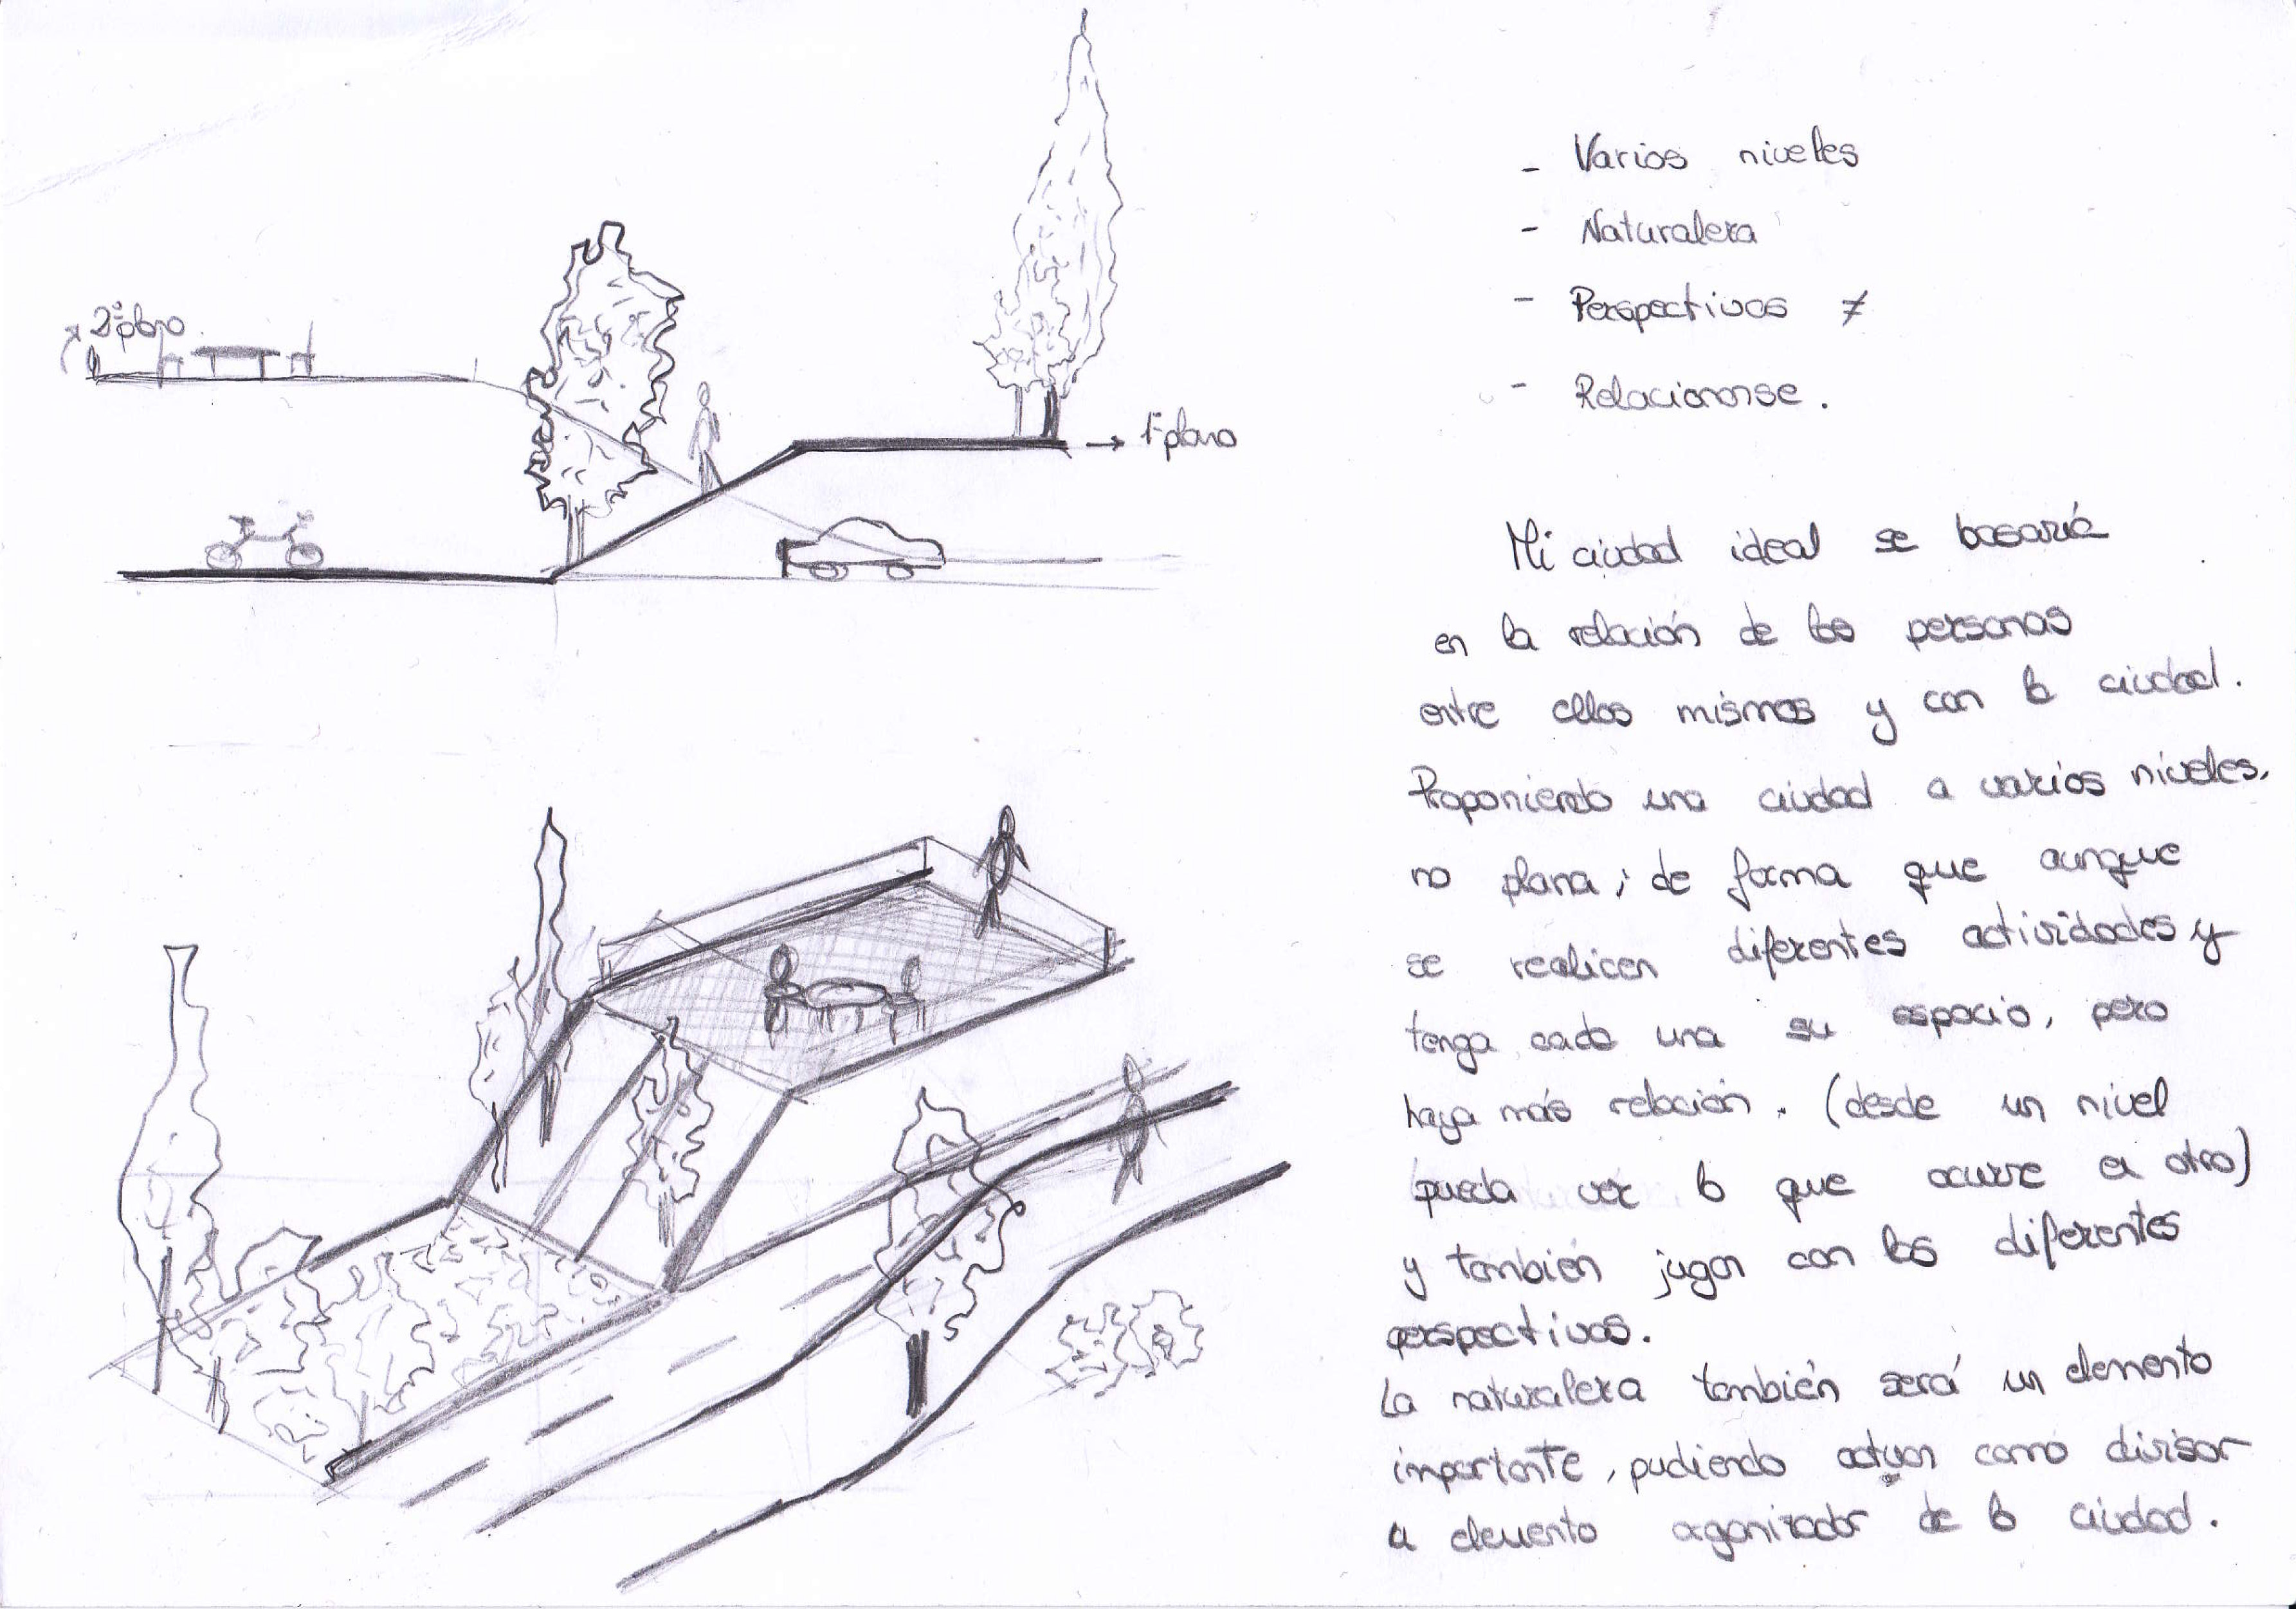 2º plano
1er plano
- Varios niveles
- Naturaleza
- Perspectivas ≠
- Relacionarse.
Mi ciudad ideal se basaría
en la relación de las personas
entre ellas mismas y con la ciudad.
Proponiendo una ciudad a varios niveles,
no plana; de forma que aunque
se realicen diferentes actividades y
tenga cada una su espacio, pero
haya más relación. (desde un nivel
pueda ver lo que ocurre en otro)
y también jugar con las diferentes
perspectivas.
La naturaleza también será un elemento
importante, pudiendo actuar como divisor
o elemento organizador de la ciudad.